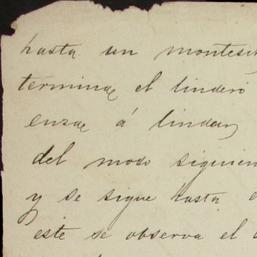 hasta un
termina el lindero
á lindar
del modo siguien
y se sigue hasta
este se observa el